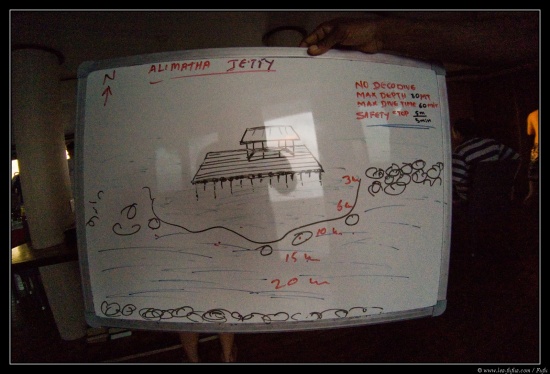 N
ALIMATHA JETTY
NO DECODING
MAX DEPTH 30MT
MAX DIVE TIME 60MIN
SAFETY STOP 5m
3min
3m
6m
10m
15m
20m
© www.les-fofus.com / Fofo